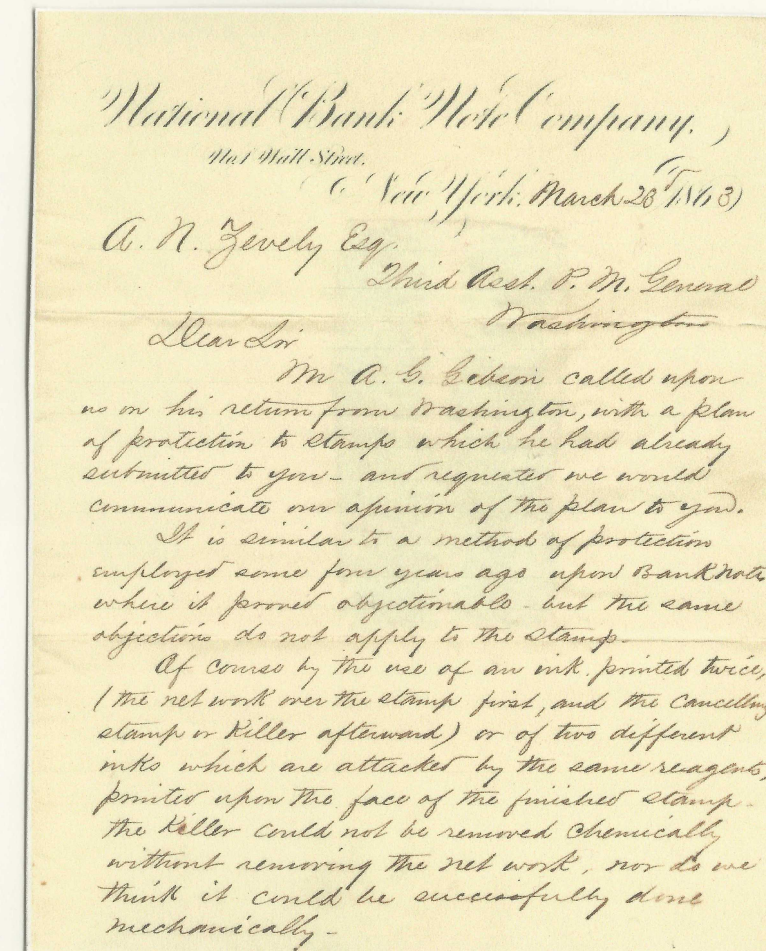 National Bank Note Company.
No. 1 Wall Street.
New York, March 23 1863
A. N. Zevely Esq.
Third Asst. P. M. General
Washington
Dear Sir
Mr A. G. Gibson called upon
us on his return from Washington, with a plan
of protection to stamps which he had already
submitted to you - and requested we would
communicate our opinion of the plan to you.
It is similar to a method of protection
employed some four years ago upon Bank Note
where it proved objectionable - but the same
objections do not apply to the stamp.
Of course by the use of an ink printed twice,
(the net work over the stamp first, and the cancelling
stamp or Killer afterward) or of two different
inks which are attacked by the same reagents,
printed upon the face of the finished stamp -
the Killer could not be removed chemically
without removing the net work, nor do we
think it could be successfully done
mechanically -